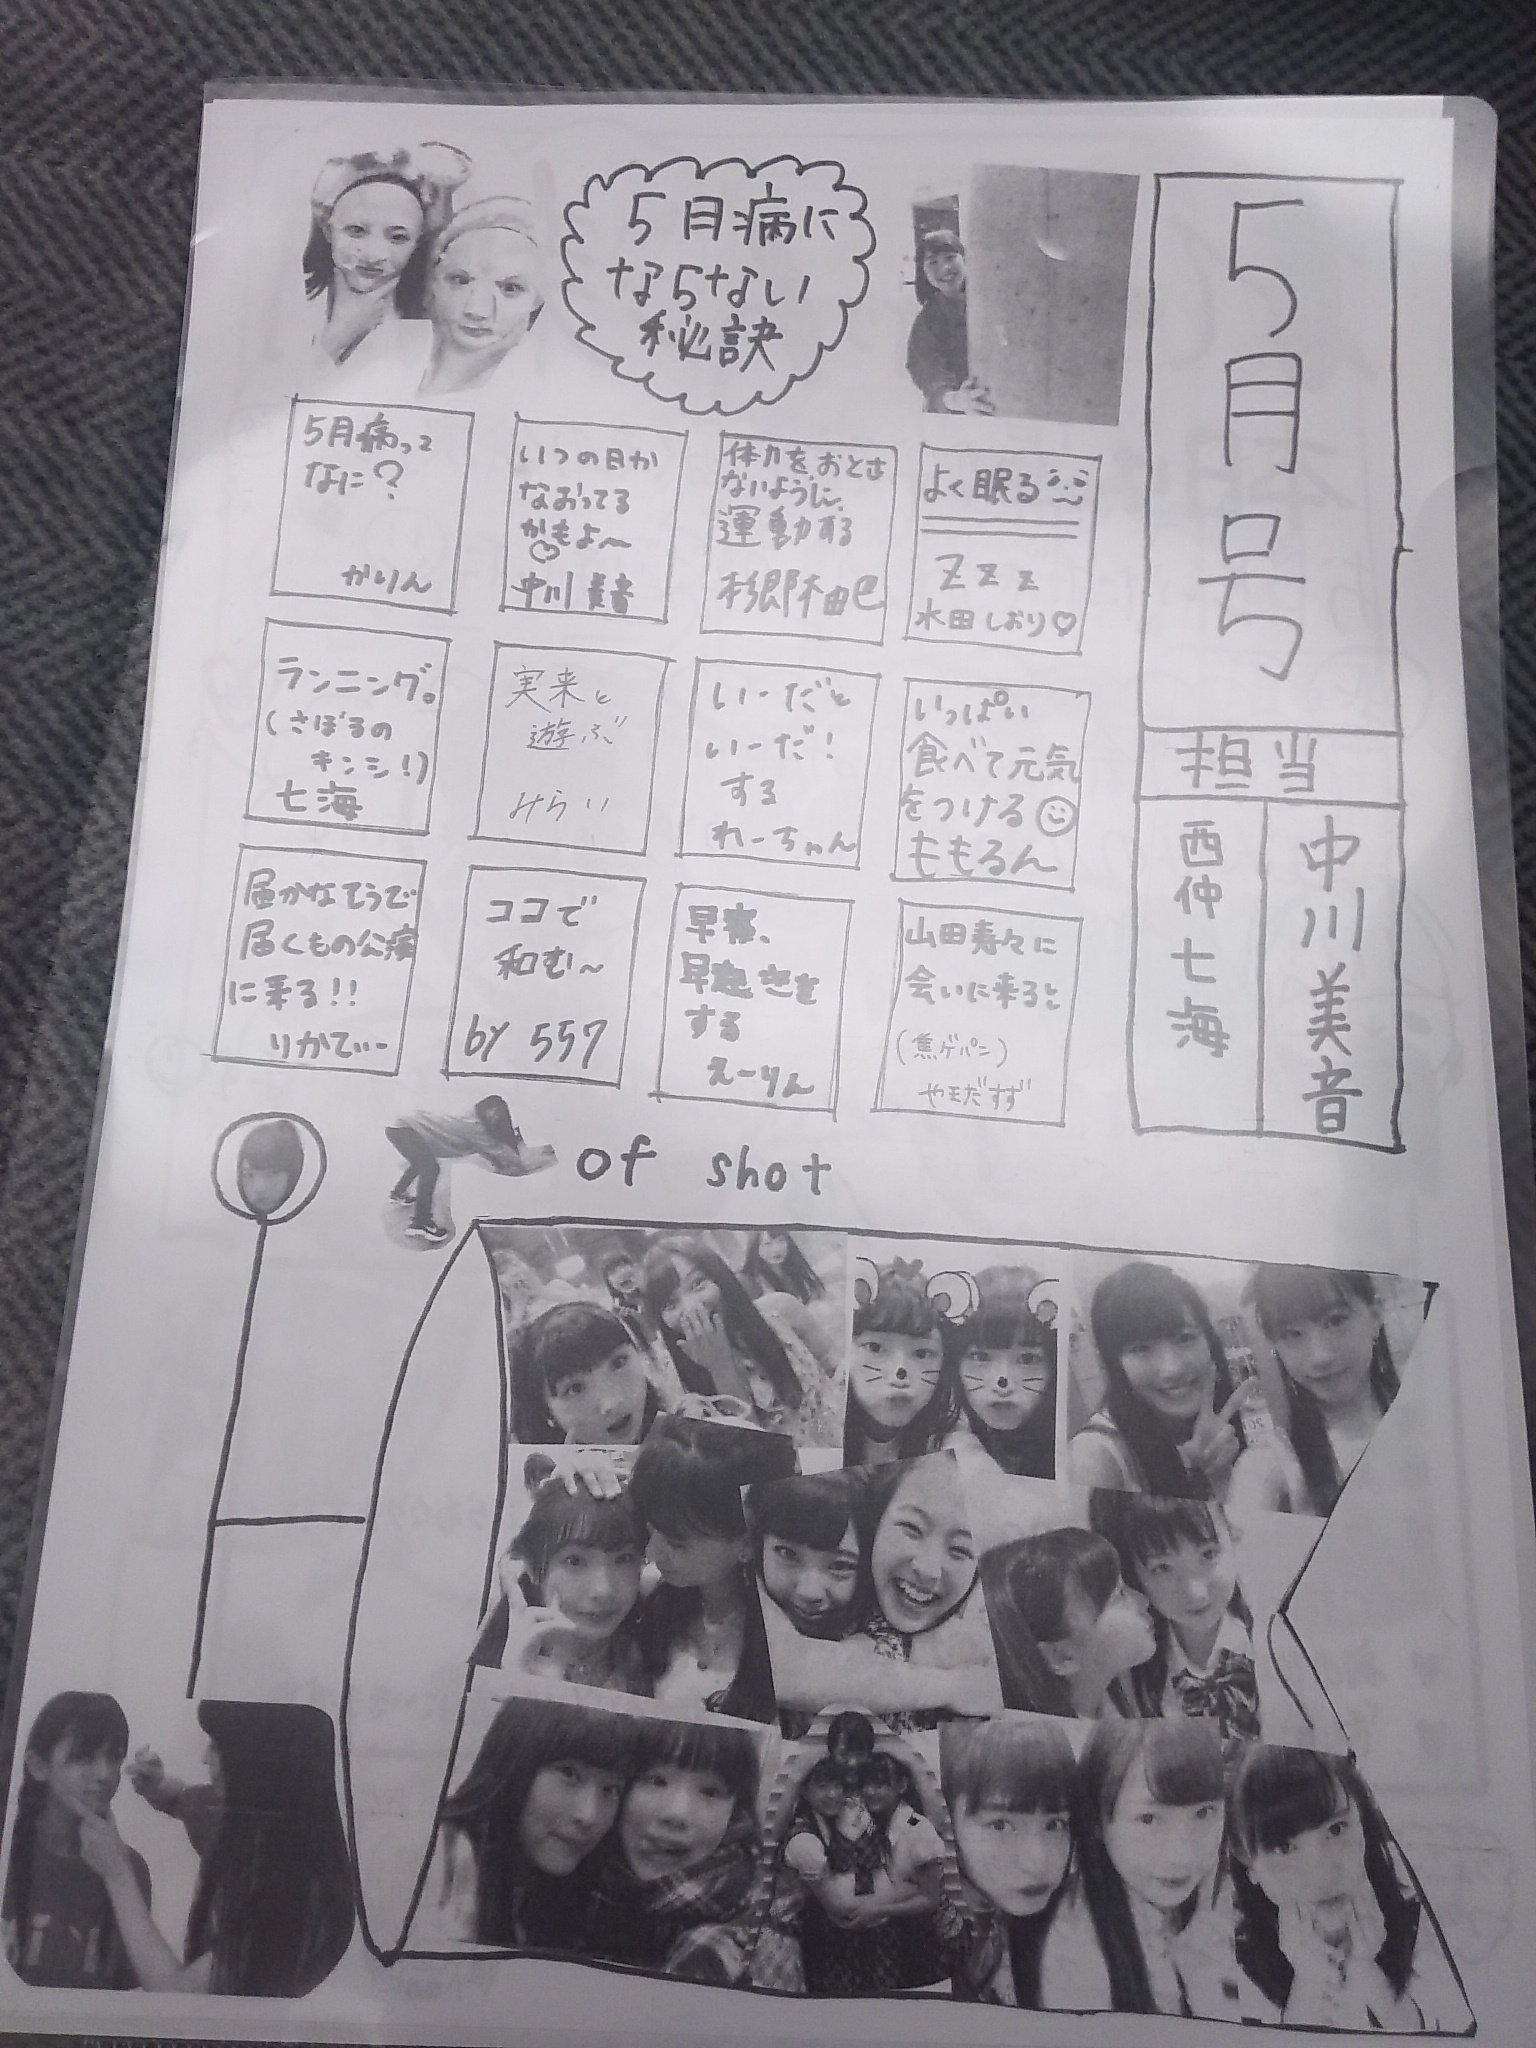 5月号
担当
中川美音
西仲七海
5月病に
ならない
秘訣
よく眠る
zzz
水田しおり♡
体力をおとさ
ないように、
運動する
杉郷柚巴
いつの日か
なおってる
かもよ〜
♡
中川美音
5月病って
なに?
かりん
いっぱい
食べて元気
をつける
ももるん
いーだと
いーだ!
する
れーちゃん
実来と
遊ぶ
みらい
ランニング。
(さぼるの
キンシ!)
七海
山田寿々に
会いに来ると
(焦ゲパン)
やまだすず
早寝、
早起きを
する
えーりん
ココで
和む〜
by 557
届かなそうで
届くもの公演
に来る!!
りかてぃー
of shot